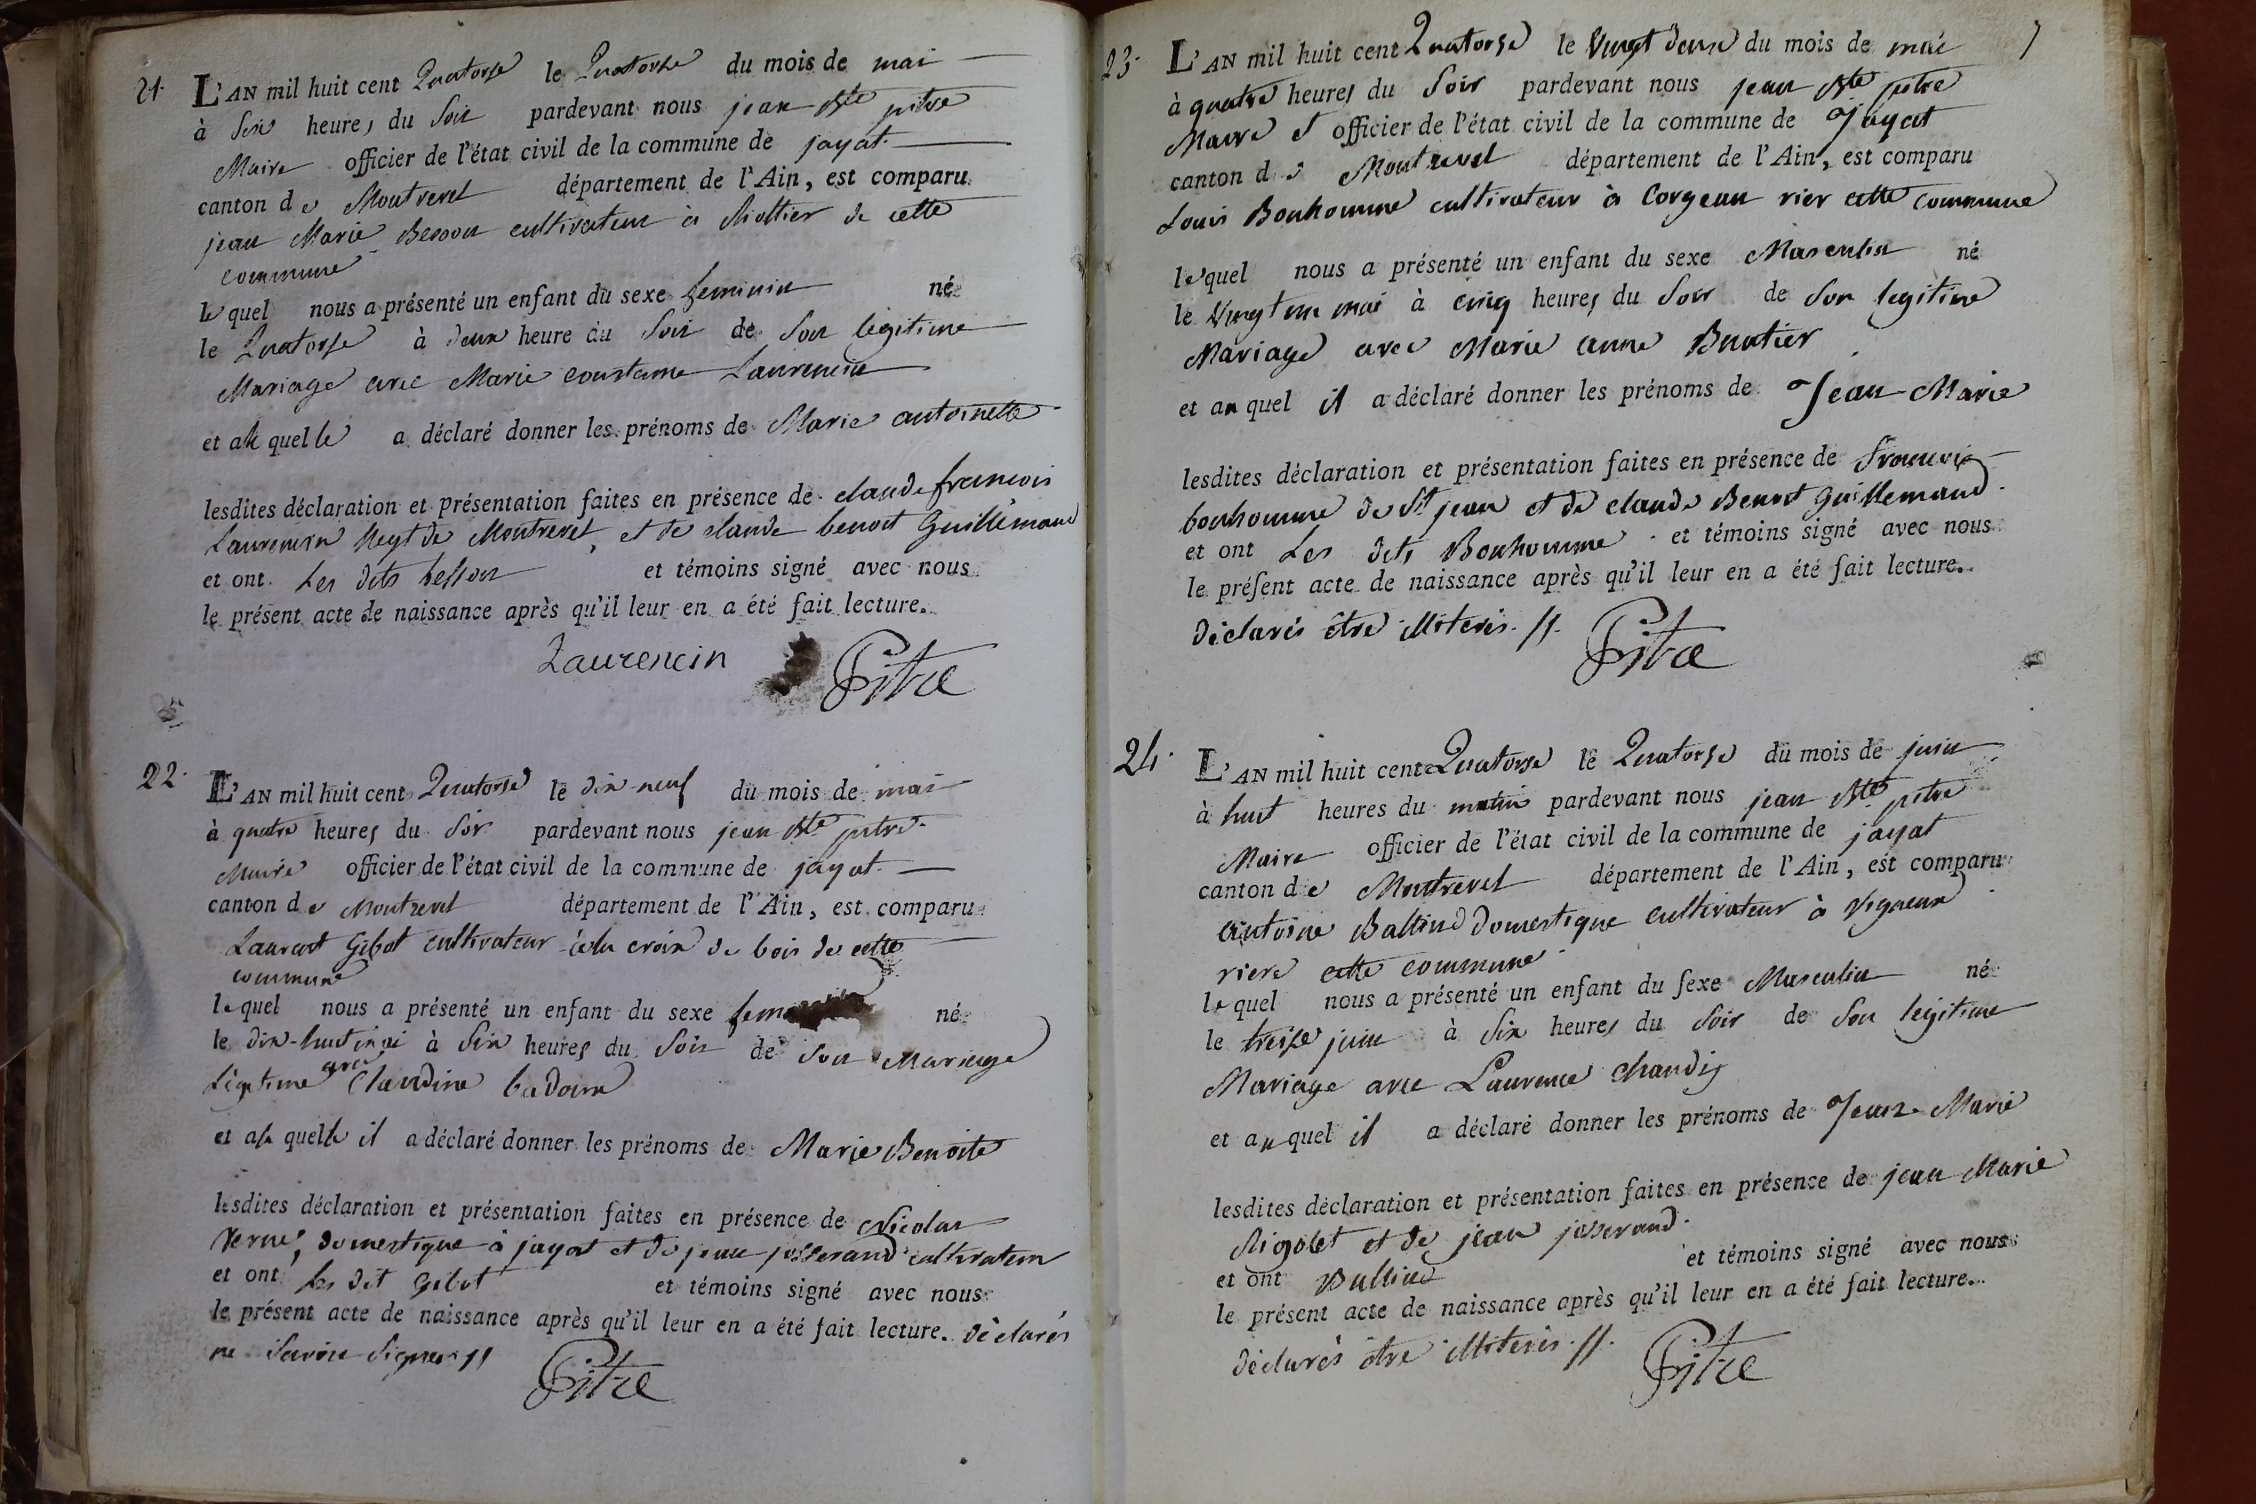 21. L'AN mil huit cent Quatorse le Quatorse du mois de mai
à Six heures du Soir pardevant nous jean Bte pitre
Maire officier de l'état civil de la commune de jayat.
canton de Montrevel département de l'Ain, est comparu
jean Marie Besson cultivateur à de cette
commune
lequel nous a présenté un enfant du sexe feminin né
le Quatorse à deux heure du Soir de Son legitime
Mariage avec Marie constance Laurencin
et a la quelle a déclaré donner les prénoms de Marie antoinette
lesdites déclaration et présentation faites en présence de claude francois
Laurencin Negt de Montrevel, et de claude benoit Guillemaud
et ont Les dits besson et témoins signé avec nous
le présent acte de naissance après qu'il leur en a été fait lecture.
Laurencin Pitre
22. L'AN mil huit cent Quatorse le dix-neuf du mois de mai
à quatre heures du Soir pardevant nous jean Bte pitre
Maire officier de l'état civil de la commune de jayat.
canton de Montrevel département de l'Ain, est comparu
Laurent Gibot cultivateur à la croix de bois de cette
commune
lequel nous a présenté un enfant du sexe né
le dix-huit mai à Six heures du Soir de Son Mariage
Légitime avec Claudine badoux
et a la quelle il a déclaré donner les prénoms de Marie Benoite
lesdites déclaration et présentation faites en présence de Nicolas
Verne, domestique à jayat et de jean josserand cultivateur
et ont Les dit Gibot et témoins signé avec nous
le présent acte de naissance après qu'il leur en a été fait lecture. déclarés
ne Savoir Signer //
Pitre
23. L'AN mil huit cent Quatorse le Vingt deux du mois de mai
à quatre heures du Soir pardevant nous jean Bte pitre
Maire et officier de l'état civil de la commune de Jayat
canton de Montrevel département de l'Ain, est comparu
Louis Bonhomme cultivateur à Corgeau rier cette commune
lequel nous a présenté un enfant du sexe Masculin né
le Vingt un mai à cinq heures du Soir de Son legitime
Mariage avec Marie anne Buatier
et au quel il a déclaré donner les prénoms de Jean-Marie
lesdites déclaration et présentation faites en présence de francois
bonhomme de St jean et de claude Benoit Guillemaud.
et ont Les dits Bonhomme et témoins signé avec nous
le présent acte de naissance après qu'il leur en a été fait lecture.
déclarés être illiterés. //.
Pitre
24. L'AN mil huit cent Quatorse le Quatorse du mois de juin
à huit heures du matin pardevant nous jean Bte pitre
Maire officier de l'état civil de la commune de jayat
canton de Montrevel département de l'Ain, est comparu
antoine Balland domestique cultivateur à Vigneux
riere cette commune
lequel nous a présenté un enfant du sexe Masculin né
le treize juin à Six heures du Soir de Son legitime
Mariage avec Laurence chandy
et au quel il a déclaré donner les prénoms de Jean-Marie
lesdites déclaration et présentation faites en présence de jean Marie
Rigolet et de jean josserand.
et ont et témoins signé avec nous
le présent acte de naissance après qu'il leur en a été fait lecture.
déclarés être illiterés. //.
Pitre